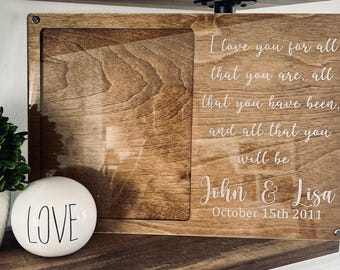 I love you for all
that you are, all
that you have been,
and all that you
will be.
John & Lisa
October 15th 2011
LOVE